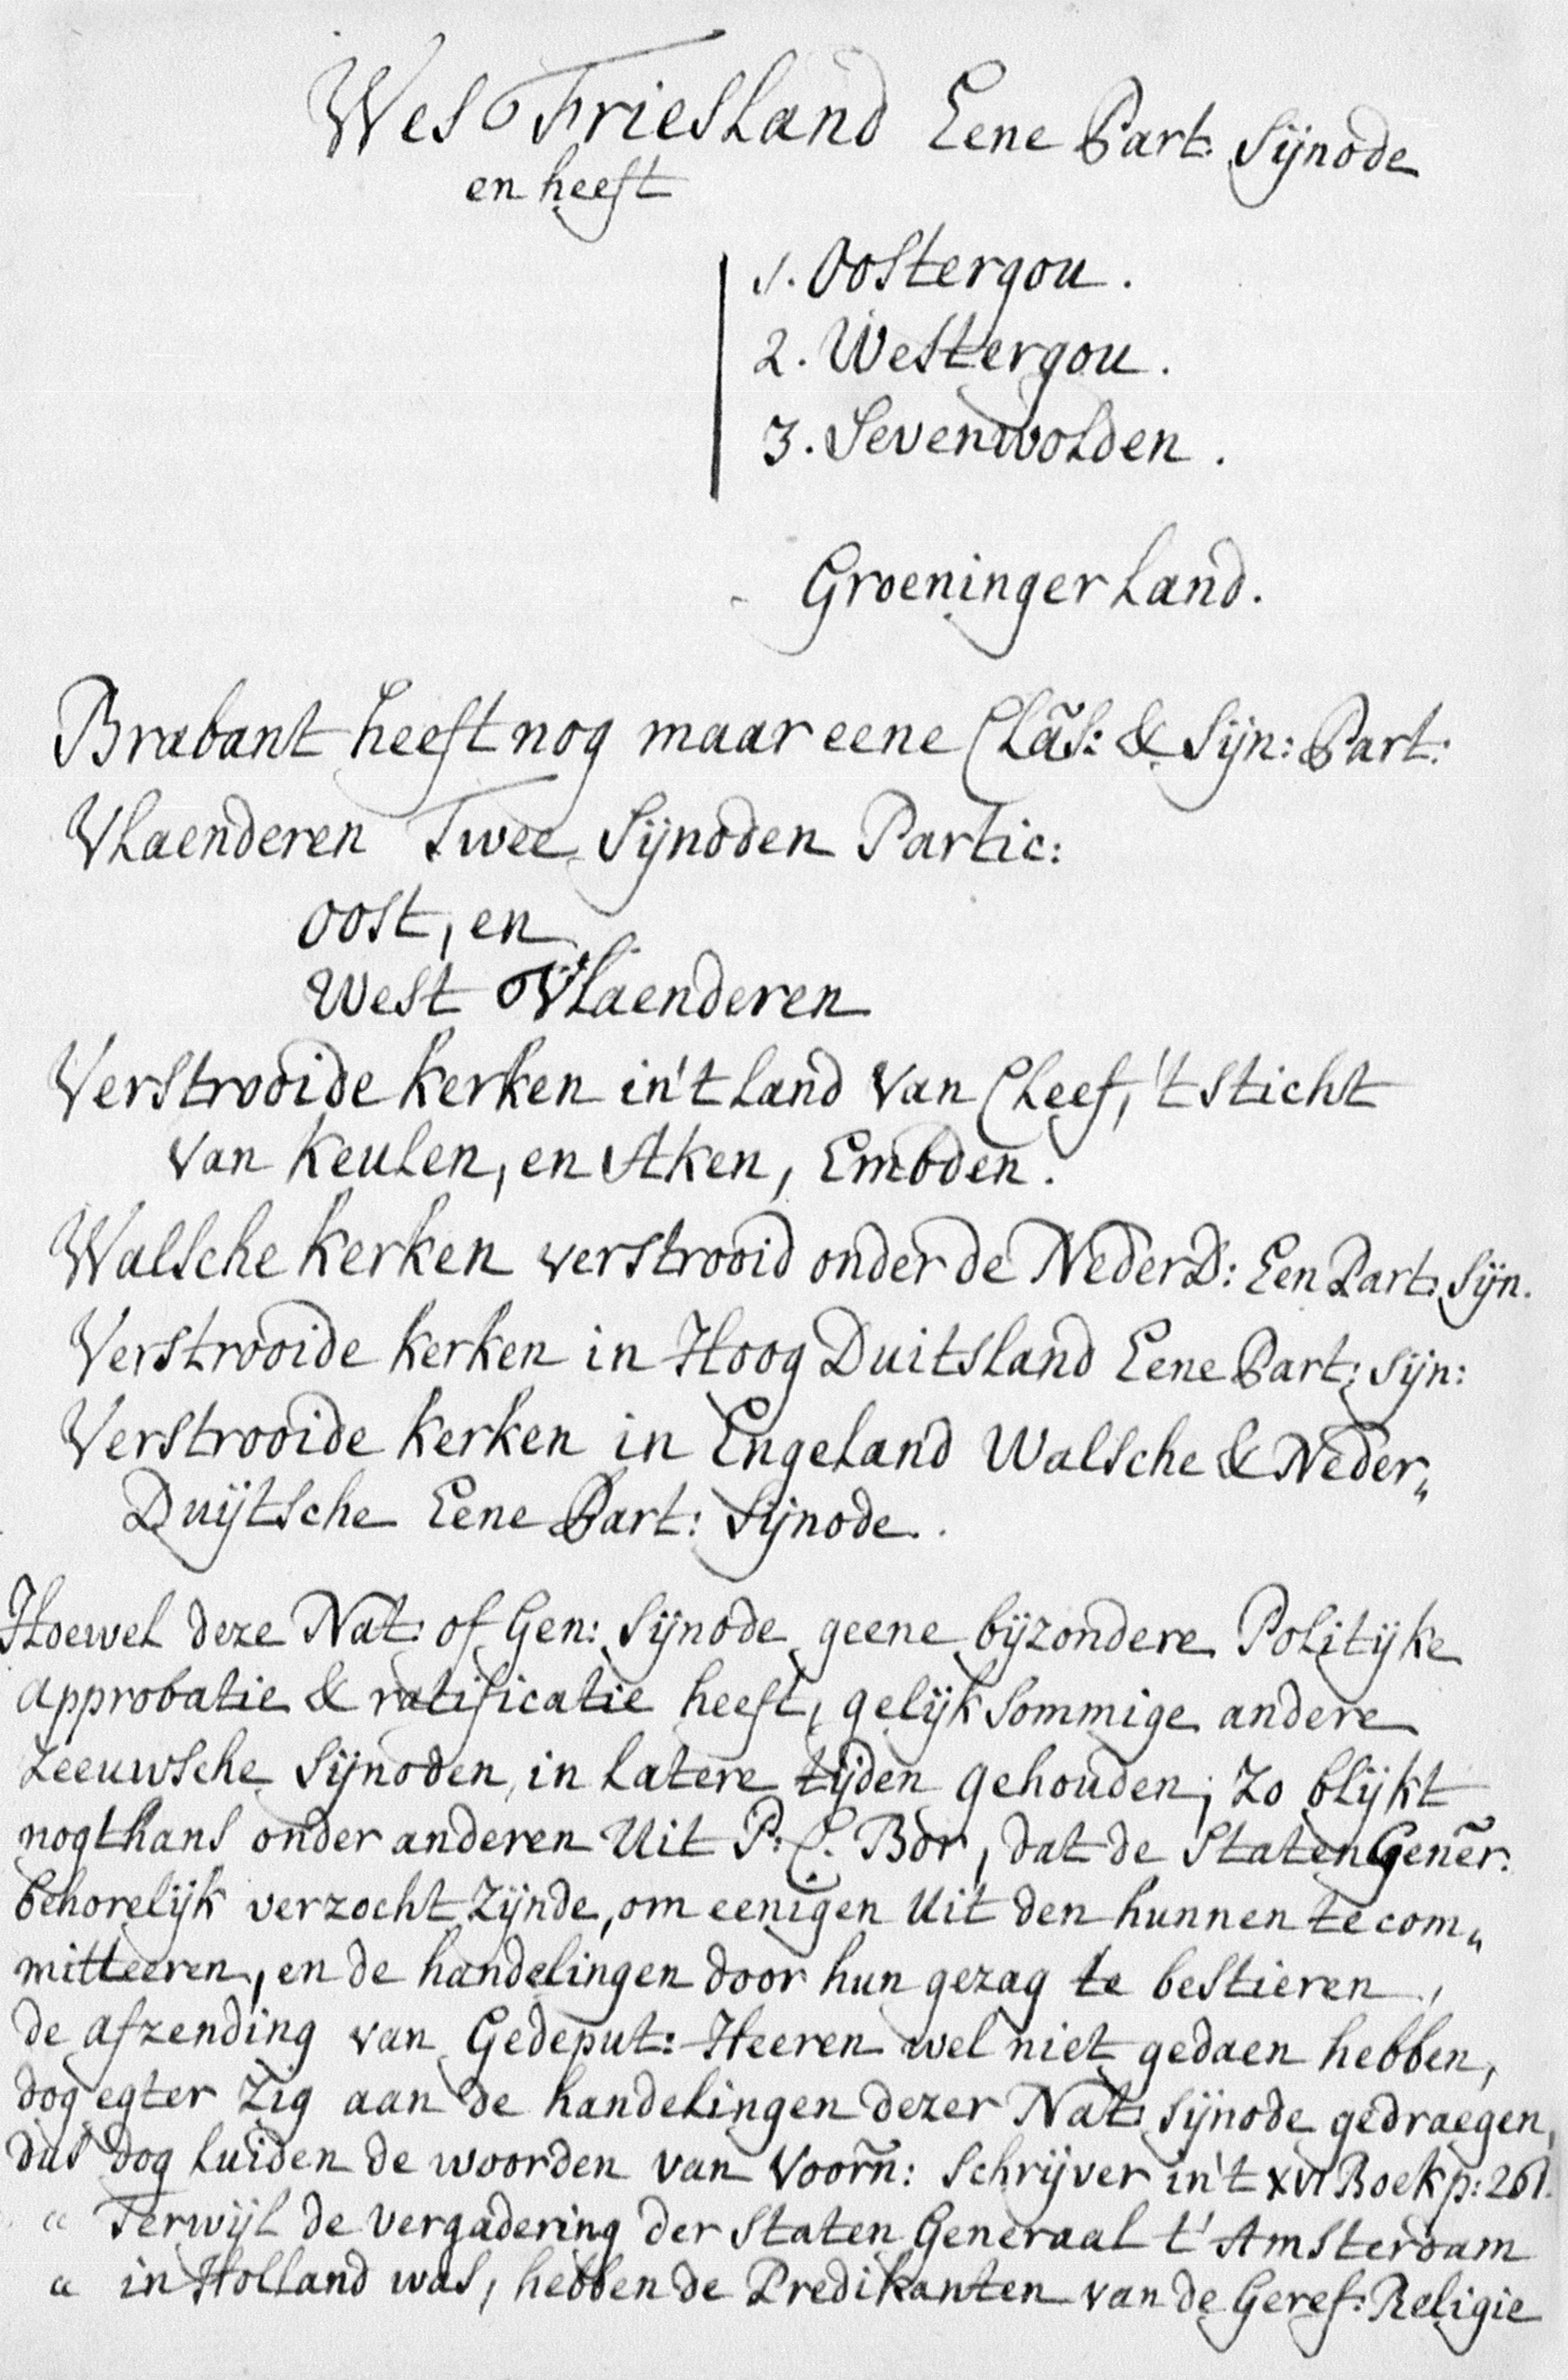 West Friesland Eene Part: Sijnode
en heeft
1. Oostergou.
2. Westergou.
3. Sevenwolden.
Groeningerland.
Brabant heeft nog maar eene Clas̃: & Sijn: Part:
Vlaenderen Twee Sijnoden Partic:
Oost, en
West Vlaenderen
Verstrooide kerken in 't land van Cleef, 't sticht
van Keulen, en Aken, Embden.
Walsche kerken verstrooid onder de NederD: Een Part: Sijn.
Verstrooide kerken in Hoog Duitsland Eene Part: Sijn:
Verstrooide kerken in Engeland Walsche & Neder„
Duijtsche Eene Part: Sijnode.
Hoewel deze Nat: of Gen: Sijnode geene bijzondere Politijke
approbatie & ratificatie heeft, gelijk sommige andere
Zeeuwsche Sijnoden, in latere tijden gehouden; Zo blijkt
nogthans onder anderen Uit P. C. Bor, dat de Staten Geñer:
behorelijk verzocht Zijnde, om eenigen Uit den hunnen te com„
mitteeren, en de handelingen door hun gezag te bestieren,
de afzending van Gedeput: Heeren wel niet gedaen hebben,
dog egter Zig aan de handelingen dezer Nat: Sijnode gedraegen,
dus dog luiden de woorden van Voorñ: Schrijver in 't XVI Boek p: 261.
" Terwijl de vergadering der Staten Generaal t' Amsterdam
" in Holland was, hebben de Predikanten van de Geref: Religie